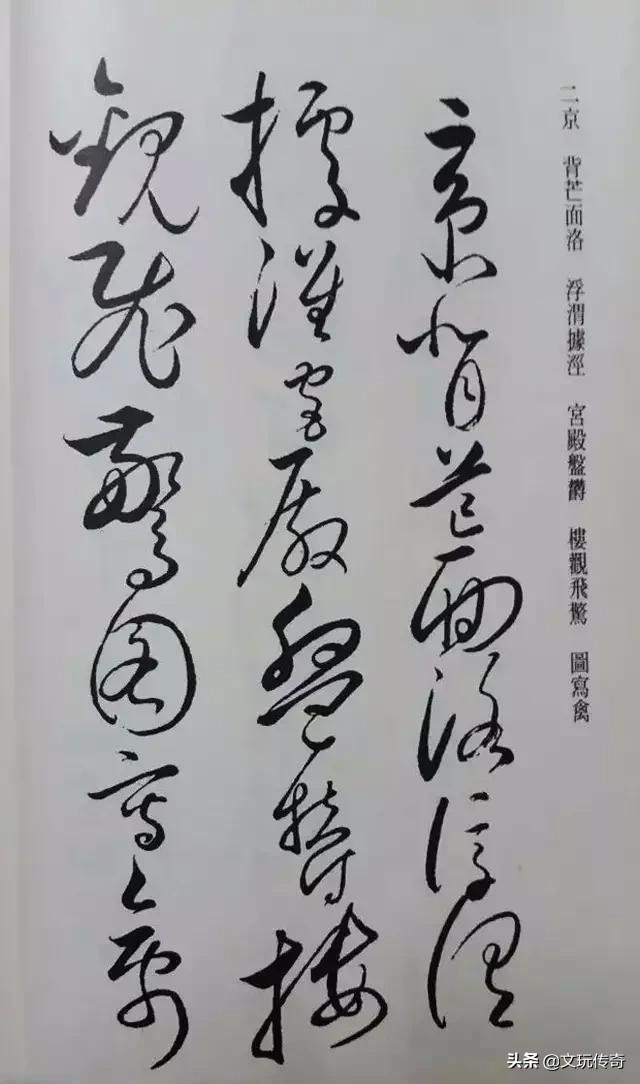 二京 背芒面洛 浮渭據涇 宮殿盤鬱 樓觀飛驚 圖寫禽
二京背芒面洛浮渭
據涇宮殿盤鬱樓
觀飛驚圖寫禽
头条 @文玩传奇